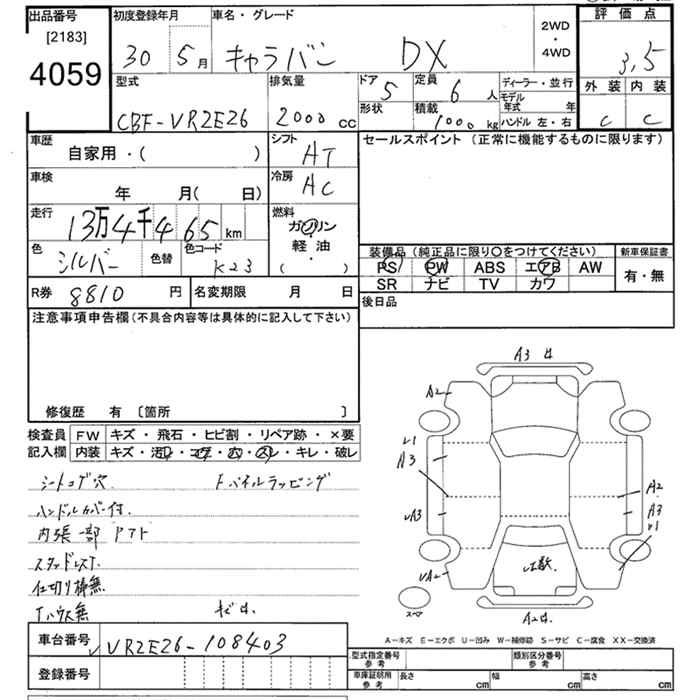 出品番号
[2183]
4059
初度登録年月
30 5月
車名・グレード
キャラバン DX
2WD
・
4WD
評価点
3,5
外装 内装
C C
型式
CBF-VR2E26
排気量
2000 cc
ドア
5
形状
定員
6 人
積載
1000 kg
ディーラー・並行
モデル
年式 年
ハンドル 左・右
車歴
自家用・( )
シフト
AT
セールスポイント (正常に機能するものに限ります)
車検
年 月( 日)
冷房
AC
走行
13万4千465 km
燃料
ガソリン
・
軽油
( ・ )
色
シルバー
色替
色コード
K23
装備品 (純正品に限り〇をつけてください)
新車保証書
PS PW ABS エアB AW
SR ナビ TV カワ
有・無
R券 8810 円
名変期限 月 日
後日品
注意事項申告欄(不具合内容等は具体的に記入して下さい)
修復歴 有 〔箇所 〕
検査員
記入欄
FW キズ・飛石・ヒビ割・リペア跡・×要
内装 キズ・汚レ・コゲ・穴・スレ・キレ・破レ
シートコゲ穴
ドバイルラッピング
ハンドルカバー付
内張一部
スタッドレス
仕切り棒無
A3
A2
A3
A2
A3
A2
スペア
A-キズ E-エクボ U-凹み W-補修跡 S-サビ C-腐食 XX-交換済
車台番号 VR2E26-108403
登録番号
型式指定番号
参考
類別区分番号
参考
車庫証明用
参考
長さ cm
幅 cm
高さ cm